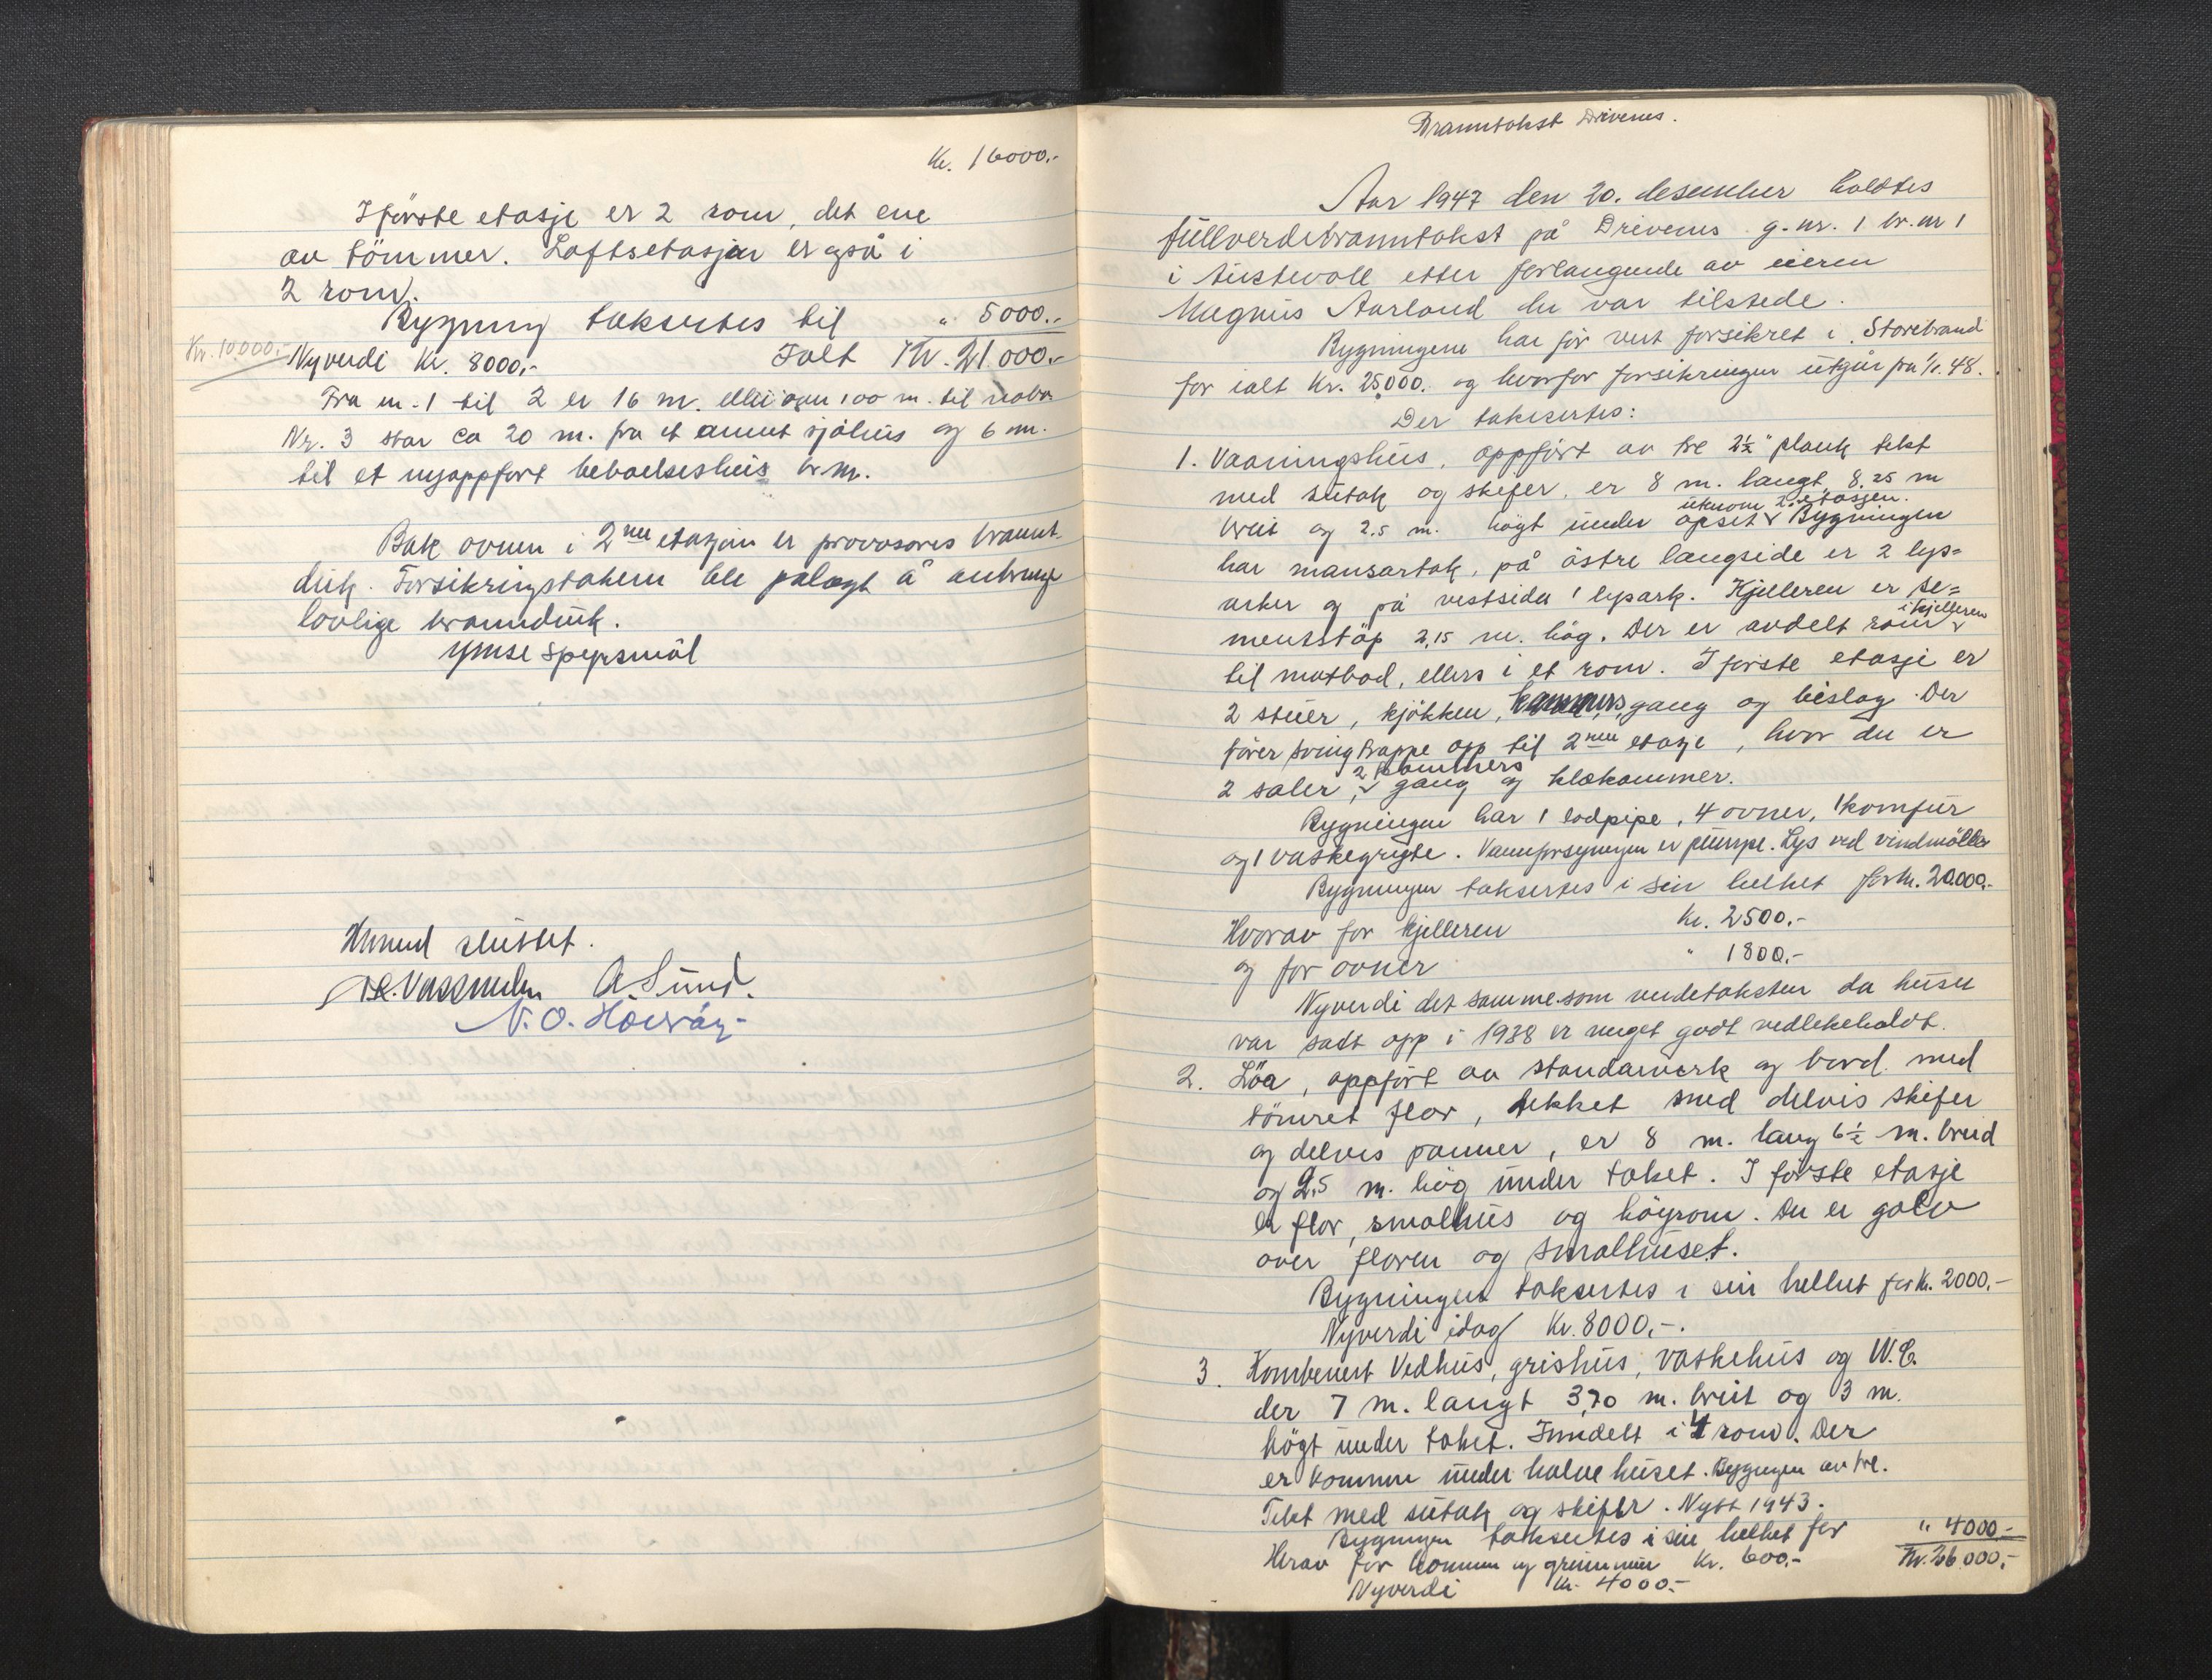 Kr. 16000.-
I förste etasje er 2 rom, det ene
av tömmer. Loftsetasjen er også i
2 rom.
Bygning taksertes til " 5000.-
Kr. 10000.- Nyverdi Kr. 8000,- Ialt Kr. 21.000.-
Fra nr. 1 til 2 er 16 m. ellers over 100 m. til nabo.
Nr. 3 star ca 20 m. fra et annet sjöhus og 6 m.
til et nyoppfört beboelseshus br.m.
Bak ovnen i 2nen etasjen er provosoris brannt-
duk. Forsikringstakeren ble pålagt å anbringe
lovlige brannduk.
Ymse Spyrsmål
Hermed sluttet.
A. Sund.
Branntakst Drivenes.
Aar 1947 den 20. desember holdtes
fullverdibranntakst på Drivenes g.nr. 1 br.nr 1
i Austevoll etter forlangende av eieren
Magnus Aarland der var tilstede.
Bygningene har för vert forsikret i Storebrand
for ialt Kr. 25,000. og hvorfor forsikringen utgår pr. 1/1. 48.
Der taksertes:
1. Vaaningshus, oppfört av tre 2½" plank tekt
med sutak og skifer, er 8 m. langt, 8,25 m
breit og 2.5 m. högt under opset utenom 2. etasjen. Bygningen
har mansartak, på östre langside er 2 lys=
arker og på vestsida 1 lysark. Kjelleren er se=
mentstöp 2,15 m. hög. Der er avdelt rom i kjelleren
til matbod, ellers i et rom. I förste etasje er
2 stuer, kjökken, kammers, gang og bislag. Der
förer svingtrappe opp til 2nen etasje, hvor der er
2 saler, 2 kammers gang og klækammer.
Bygningen har 1 lodpipe, 4 ovner, 1 komfur
og 1 vaskegryte. Vannforsyningen er pumpe. Lys ved vindmölle
Bygningen taksertes i sin helhet for kr. 20.000.-
Hvorav for kjelleren Kr. 2500.-
og for ovner " 1800.-
Nyverdi det samme som verdetaksten da huset
var satt opp i 1938 er meget godt vedlikeholdt.
2. Löa, oppfört av standarverk og bord med
tömret flor, tekket med delvis skifer
og delvis panner, er 8 m. lang 6½ m. breid
og 2,5 m. hög under taket. I förste etasje
er flor, smalhus og höyrom. Der er golv
over floren og smalhuset.
Bygningen taksertes i sin helhet for Kr. 2000.-
Nyverdi idag Kr. 8000,-.
3. Kombenert Vedhus, grishus, vaskehus og W.C.
der 7 m. langt 3,70 m. breit og 3 m.
högt under taket. Inndelt i 4 rom. Der
er komme under halve huset. Bygningen av tre.
Tekt med sutak og skifer. Nytt 1943.
Bygningen taksertes i sin helhet for " 4000.-
Herav for komme og grunnmur Kr. 600,- Kr. 26.000,-
Nyverdi Kr. 4000.-